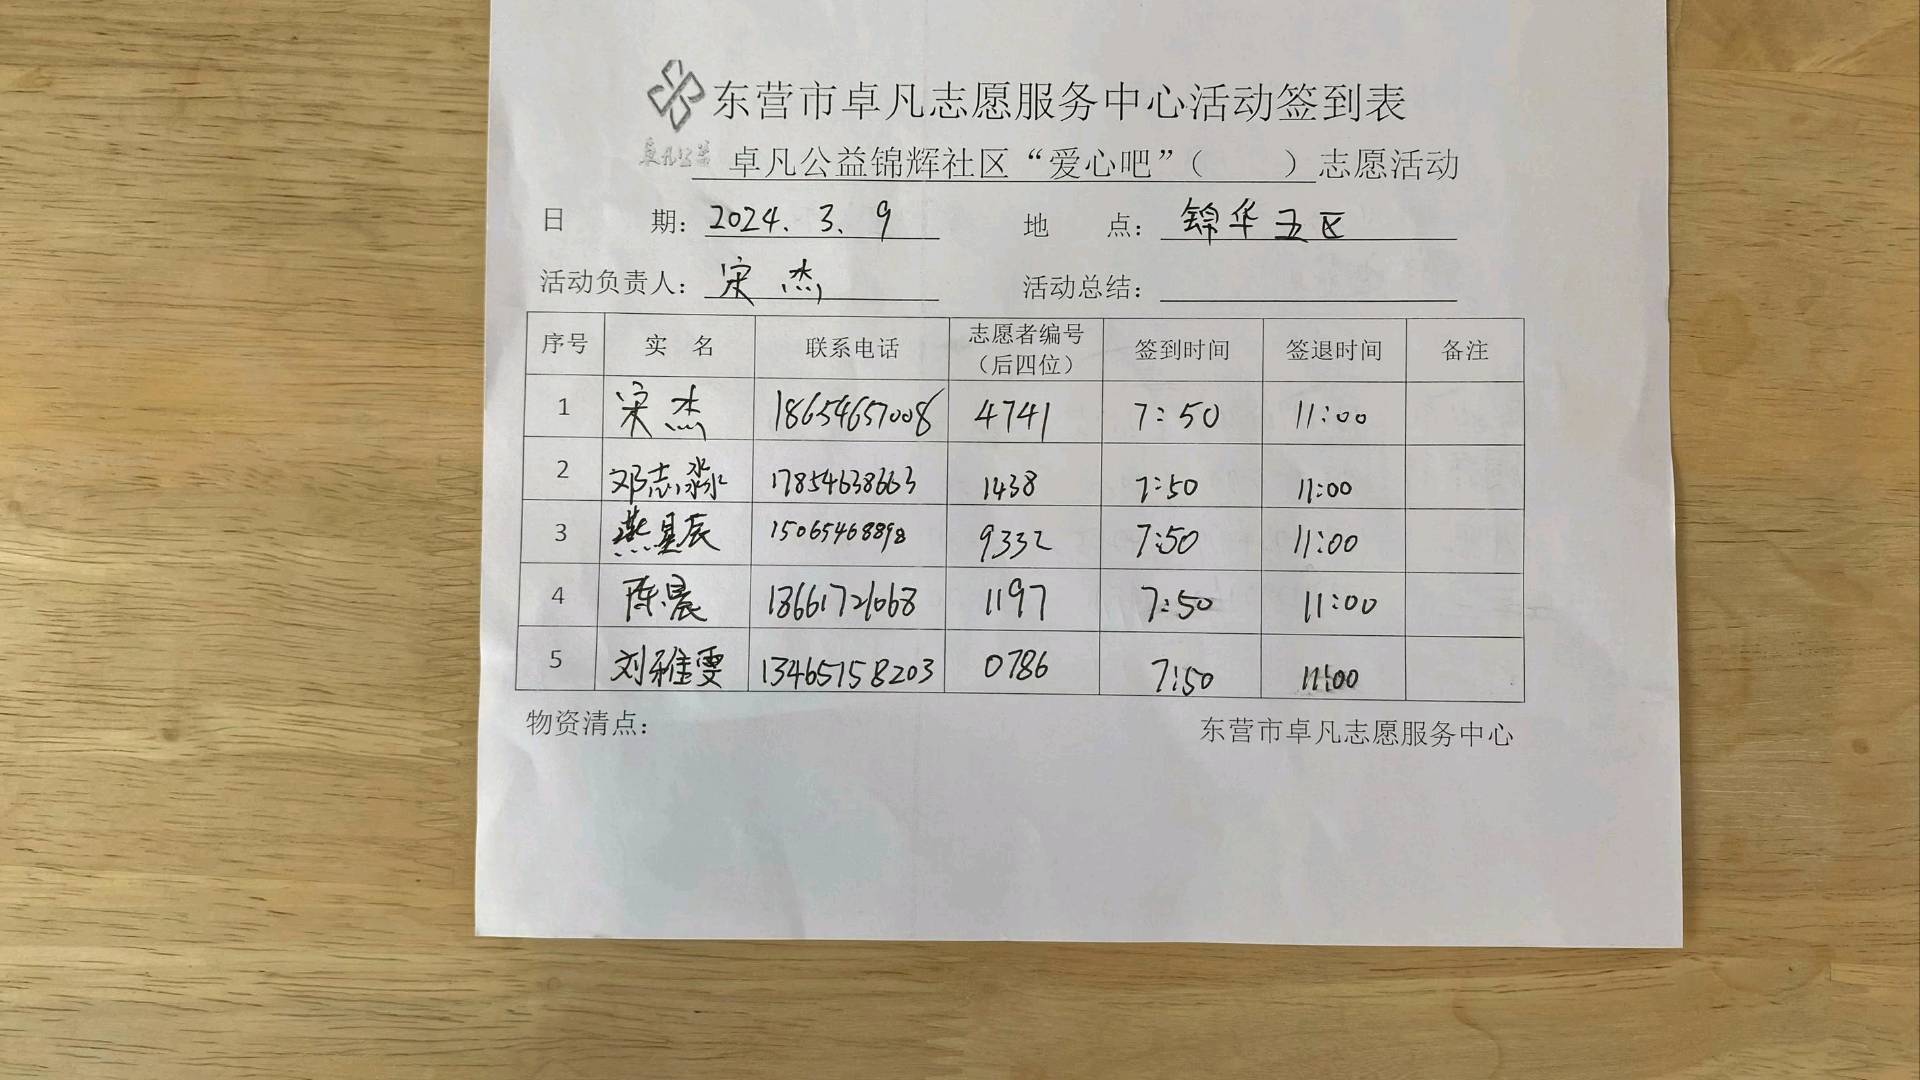 东营市卓凡志愿服务中心活动签到表
卓凡公益
卓凡公益锦辉社区“爱心吧”（　　）志愿活动
日　期：2024.3.9　地　点：锦华五区
活动负责人：宋杰　活动总结：
序号　实名　联系电话　志愿者编号（后四位）　签到时间　签退时间　备注
1　宋杰　18654657008　4741　7:50　11:00
2　邓志淼　17854638663　1438　7:50　11:00
3　燕星辰　15065468898　9332　7:50　11:00
4　陈晨　18661721068　1197　7:50　11:00
5　刘雅雯　13465758203　0786　7:50　11:00
物资清点：　东营市卓凡志愿服务中心